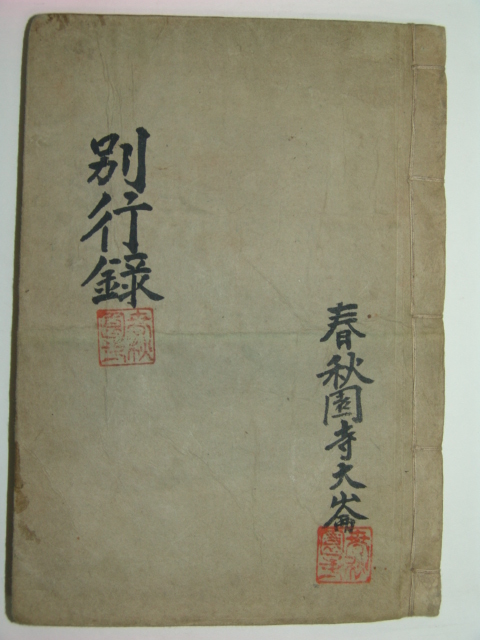 別行錄
春秋園寺大崙